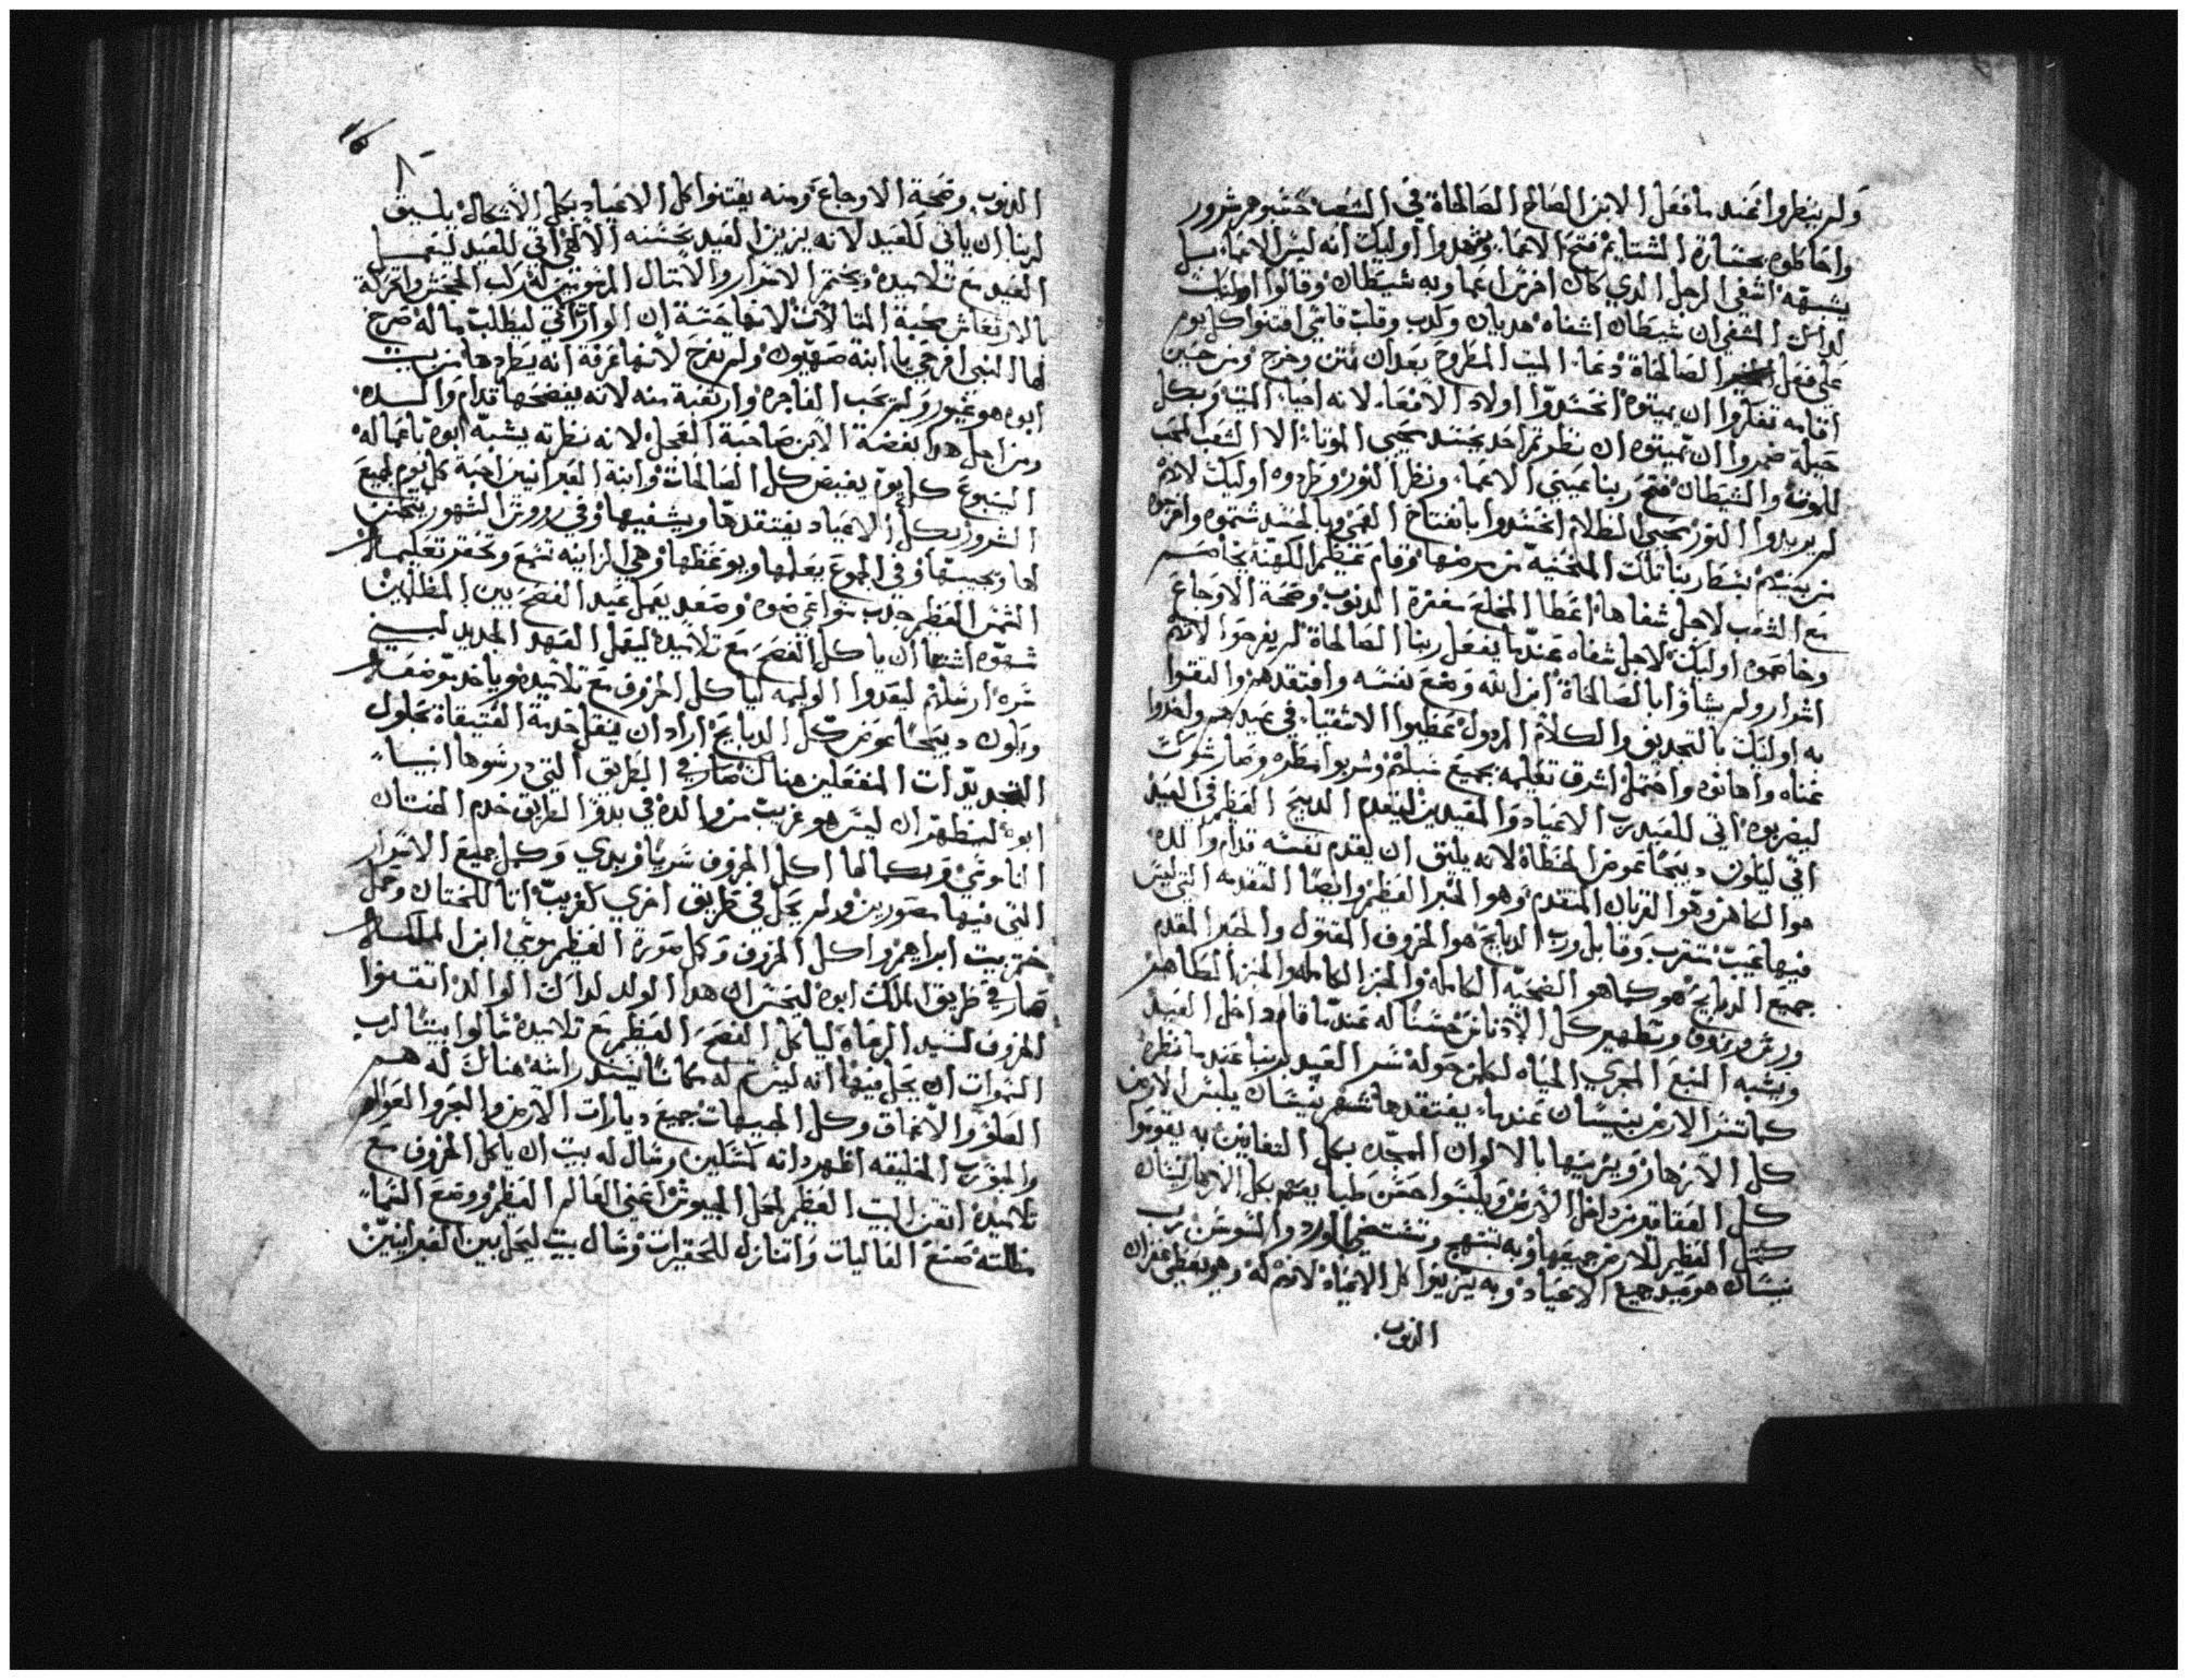 ولم ينظروا عند ما فعل الابن الصالح الصالحاة في الشعب حسبوهم شرور
واحاطوه بحسارة الشتايم فتح الاعما وجحدوا اوليك انه ليس الاعما بل
يشبهه اشفي الرجل الدي كان اخرس اعما وبه شيطان وقالوا اوليك
لداك المشفي ان شيطان اشفاه هديان وكدب وقلب قاسي اقتنوا كل يوم
علي فعل الصالحاة دعا الميت المطروح بعد ان نتن وخرج ومن حين
اقامه تفكروا ان يميتوه انحسدوا اولاد الافعا لانه احيا الميت وبكل
حيلة ضمروا ان يميتوه ان نظرتم احد يحسد محيي الموتا الا الشعب المحب
للموت والشيطان فتح ربنا عيني الاعما ونظر النور وطردوه اوليك لانهم
لم يريدوا النور محبي الظلام انحسدوا بانفتاح العمي وبالحسد شتموه واخرجوه
من بينهم بسط ربنا تلك المنحنية من مرضها وقام عظيم الكهنة يخاصم
مع الشعب لاجل شفاها اعطا المخلع مغفرة الدنوب وصحة الاوجاع
وخاصموه اوليك لاجل شفاه عندما يفعل ربنا الصالحاة لم يفرحوا لانهم
اشرار ولم يشاؤا بالصالحاة ابن الله وضع نفسه وافتقدهم والتقوا
به اوليك بالتجديف والكلام المردول عظيوا الاشقياء في عيدهم واخدوا
عناه واهانوه واحتمل اشرق تعليمه بجميع سبلهم وشربوا مطره وصار شوكً
ليضربوه اتي للعيد رب الاعياد والمعيدين ليقدم الدبيح العظيم في العيد
اتي ليكون دبيحًا عوض الخطاة لانه يليق ان يقدم نفسه قدام والده
هو الكاهن وهو القربان المتقدم وهو الحبر العظيم وايضًا التقدمه التي ليس
فيها عيب متقرب وقابل ورب الدبايح هو الخروف المقتول والحبر المقدم
جميع الدبايح هو كما هو الضحيه الكامله والخبز الكامله والخبز الطاهر
ورش وزوفا وتطهير كل الادناس حسنًا له عندما قام داخل العيد
ويشبه المنبع المجري المياه لكلمن حوله سر العيد بربنا عند ما نظره
كما تسر الارض بنيسان عندما يفتقدها شهر نيسان يلبس الارض
كل الازهار ويزينها بالالوان الممجده بكل التفانين به يقوموا
كل العقاقير من داخل الارض ويلبسوا حسن طبايعهم بكل الازهار نيسان
كمتل العظيم للارض جميعها وبه تبتهج وتفتخر الورد والسوسن رب
نيسان هو عيد جميع الاعياد وبه يتزينوا كل الاعياد لانهم له وهو يعطي غفران
الدنوب
الدنوب وصحة الاوجاع ومنه يقتنوا كل الاعياد بكل الاشكال يليق
لربنا ان ياتي للعيد لانه يزين العيد بحسنه الالهي اتي للعيد ليعمل
العيد مع تلاميده ويختم الاسرار والامتال المرسومين له ركب الجحش وتحركة
بالارتعاش محبة المتالات لانها حسة ان الوارث اتي ليطلب ماله صرخ
لها النبي افرحي يا ابنة صهيون ولم تفرح لانها عرفة انه يطردها من بيت
ابوه هو غيور ولم يحب الفاجره وارتعبة منه لانه يفضحها قدام والده
ومن اجل هدا بغضة الابن صاحبة العجل لانه نظرته يشبه ابوه باعماله
اليسوع كل يوم يفيض كل الصالحات وابنة العبرانيين احبة كل يوم لجميع
الشرور بكل الاعياد يفتقدها ويشفيها وفي رووس الشهور يتحنن
لها ويجيبها وفي الجموع يعلمها ويوعظها وهي الزانيه تسمع وتحقر تعليمه
الشمس العظيم جدب نواعي ضوه وصعد يعمل عيد الفصح بين المظلمين
شهوه اشتها ان ياكل الفصح مع تلاميده ليقبل العهد الجديد لبني
سره ارسلهم ليعدوا الوليمه لياكل الخروف مع تلاميده وياخد موضعه
ويكون دبيحًا عوض كل الدبايح اراد ان ينقل خدمة العتيقاة بحلول
التجديدات المنفعلين هناك صار في الطريق التي درسوها انبياء
ابوه ليظهر ان ليس هو غريب من والده في بدو الطريق خدم الختان
الناموسي وبكمالها اكل الخروف سريًا فريدي وكمل جميع الاسرار
التي فيها مصورين ولم يحل في طريق اخري كغريب اتا للختان وحمل
ختم بيت ابراهيم واكل الخروف وكل صورة العظيم موسي ابن الملك
صار في طريق الملك ابوه ليخبر ان هدا الولد لداك الوالد اتقدوا
الخروف لسيد الرعاه لياكل الفصح العظيم مع تلاميده قالوا بيتًا لرب
السموات ان يحل فيها انه ليس له مكانًا يسند راسه هناك له هم
العلو والاعماق وكل الجيهات جميع ديارات الارض والبحر والعوالم
والمودب الخليقه اظهر داته كمتلين وسال له بيت ان ياكل الخروف مع
تلاميده اتقن البيت العظيم لمحل الجيوش اعني العالم العظيم ووضع السماء
مظلته صنع العاليات واتنازل للحقيرات وسال بيت ليحل بين العبرانيين